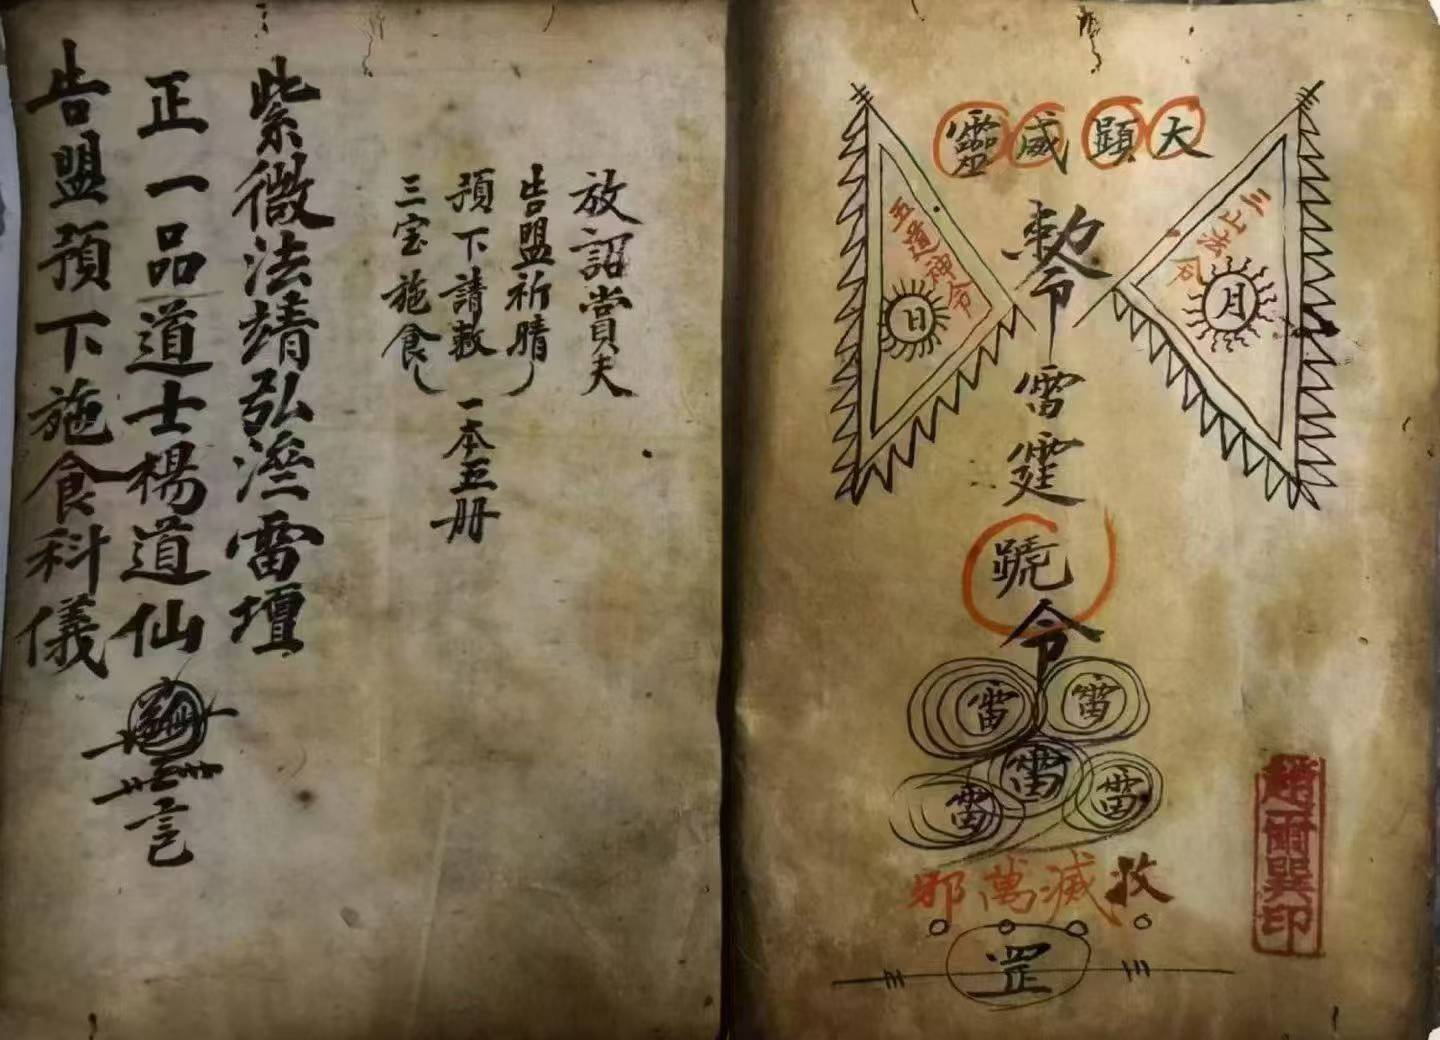 大顯威靈
三山法令
月
五道神令
日
勅令雷霆號令
雷
雷
雷
雷
雷
滅萬邪
罡
趙爾巽印
放詔賞夫
告盟祈晴
預下請赦
三宝施食
一本五册
紫微法靖弘濟雷壇
正一品道士楊道仙
告盟預下施食科儀